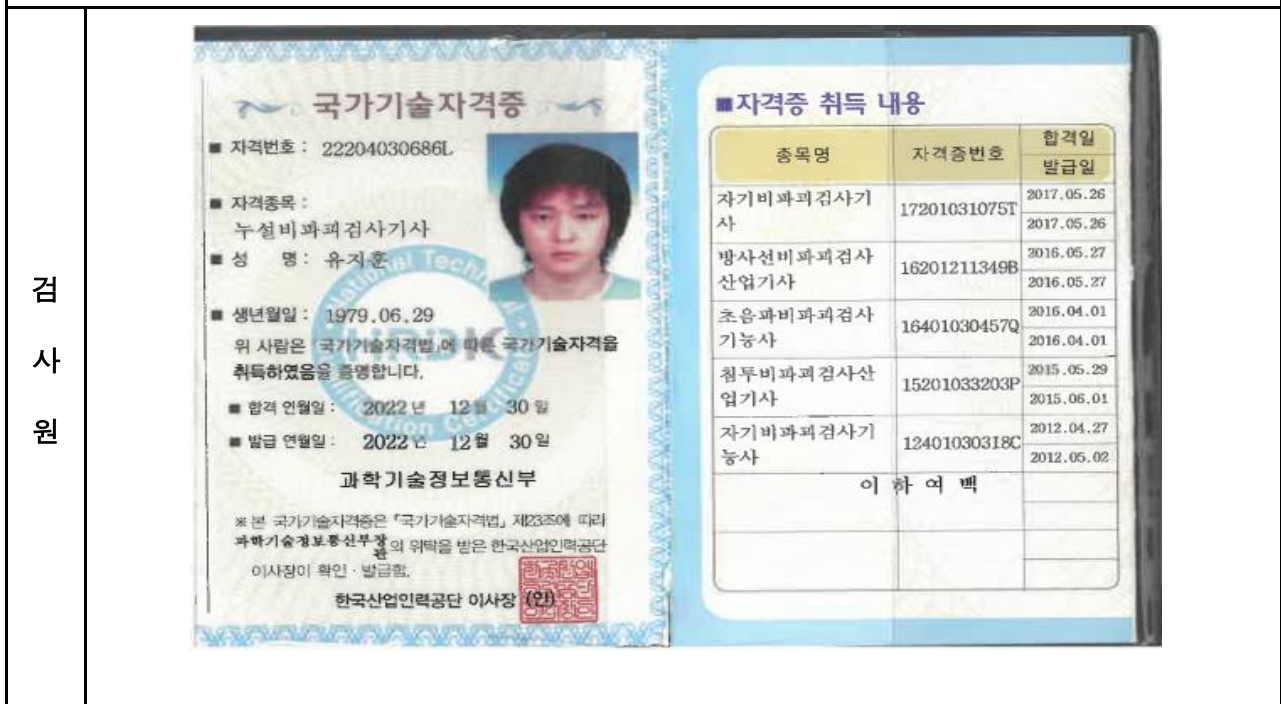 검
사
원
국가기술자격증
■ 자격번호 : 22204030686L
■ 자격종목 :
누설비파괴검사기사
■ 성 명 : 유지훈
■ 생년월일 : 1979.06.29
위 사람은 국가기술자격법에 따른 국가기술자격을
취득하였음을 증명합니다.
■ 합격 연월일 : 2022년 12월 30일
■ 발급 연월일 : 2022년 12월 30일
과학기술정보통신부
※ 본 국가기술자격증은 「국가기술자격법」 제23조에 따라
과학기술정보통신부장관의 위탁을 받은 한국산업인력공단
이사장이 확인 · 발급함.
한국산업인력공단 이사장 (인)
■자격증 취득 내용
종목명 자격증번호 합격일
발급일
자기비파괴검사기 17201031075T 2017.05.26
사 2017.05.26
방사선비파괴검사 16201211349B 2016.05.27
산업기사 2016.05.27
초음파비파괴검사 16401030457Q 2016.04.01
기능사 2016.04.01
침투비파괴검사산 15201033203P 2015.05.29
업기사 2015.06.01
자기비파괴검사기 12401030318C 2012.04.27
능사 2012.05.02
이 하 여 백